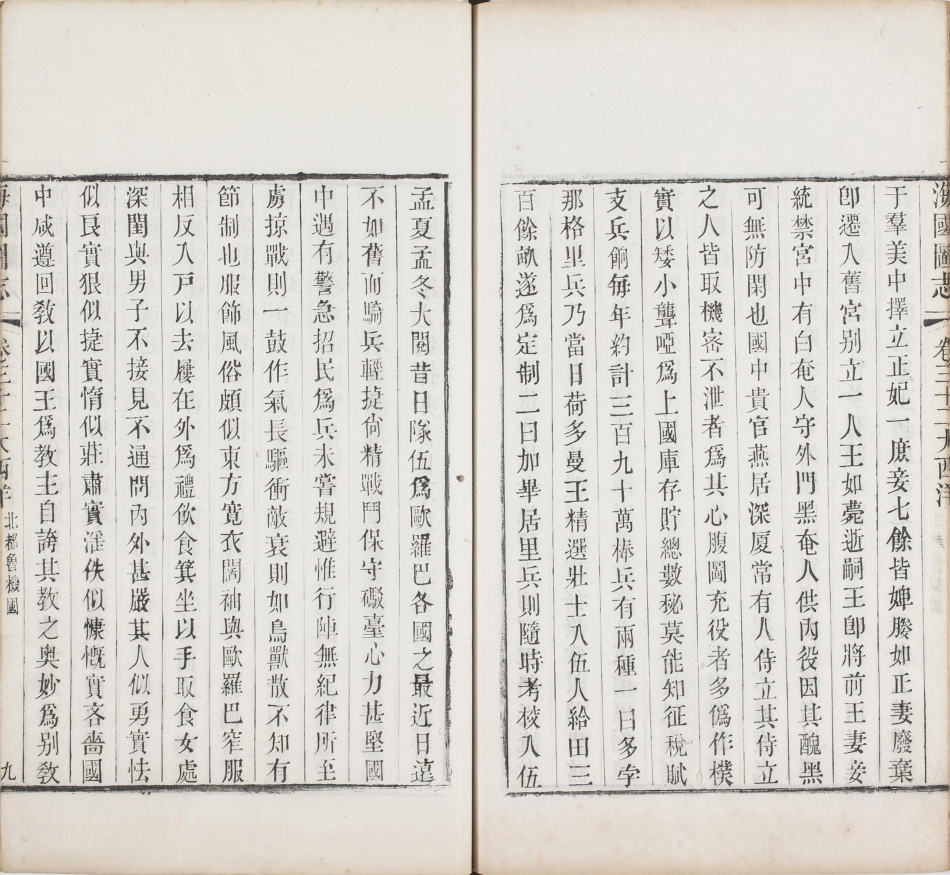 海國圖志 卷三十二 大西洋
于羣美中擇立正妃一庶妾七餘皆婢媵如正妻廢棄
卽遷入舊宮别立一人王如薨逝嗣王卽將前王妻妾
統禁宮中有白奄人守外門黑奄人供內役因其醜黑
可無防閑也國中貴官燕居深厦常有人侍立其侍立
之人皆取機密不泄者爲其心腹圖充役者多僞作樸
實以矮小聾啞爲上國庫存貯總數秘莫能知征稅賦
支兵餉每年約計三百九十萬棒兵有兩種一曰多孛
那格里兵乃當日荷多曼王精選壯士入伍人給田三
百餘畝遂爲定制二曰加畢居里兵則隨時考校入伍
孟夏孟冬大閱昔日隊伍爲歐羅巴各國之最近日遠
不如舊而騎兵輕捷尙精戰鬥保守礮臺心力甚堅國
中遇有警急招民爲兵未嘗規避惟行陣無紀律所至
虜掠戰則一鼓作氣長驅衝敵衰則如鳥獸散不知有
節制也服飾風俗頗似東方寛衣闊袖與歐羅巴窄服
相反入戸以去屨在外爲禮飲食箕坐以手取食女處
深閨與男子不接見不通問內外甚嚴其人似勇實怯
似良實狠似捷實惰似莊肅實淫佚似慷慨實吝嗇國
中咸遵回敎以國王爲教主自誇其教之奥妙爲别敎
海國圖志 卷三十二 大西洋 北都魯機國 九